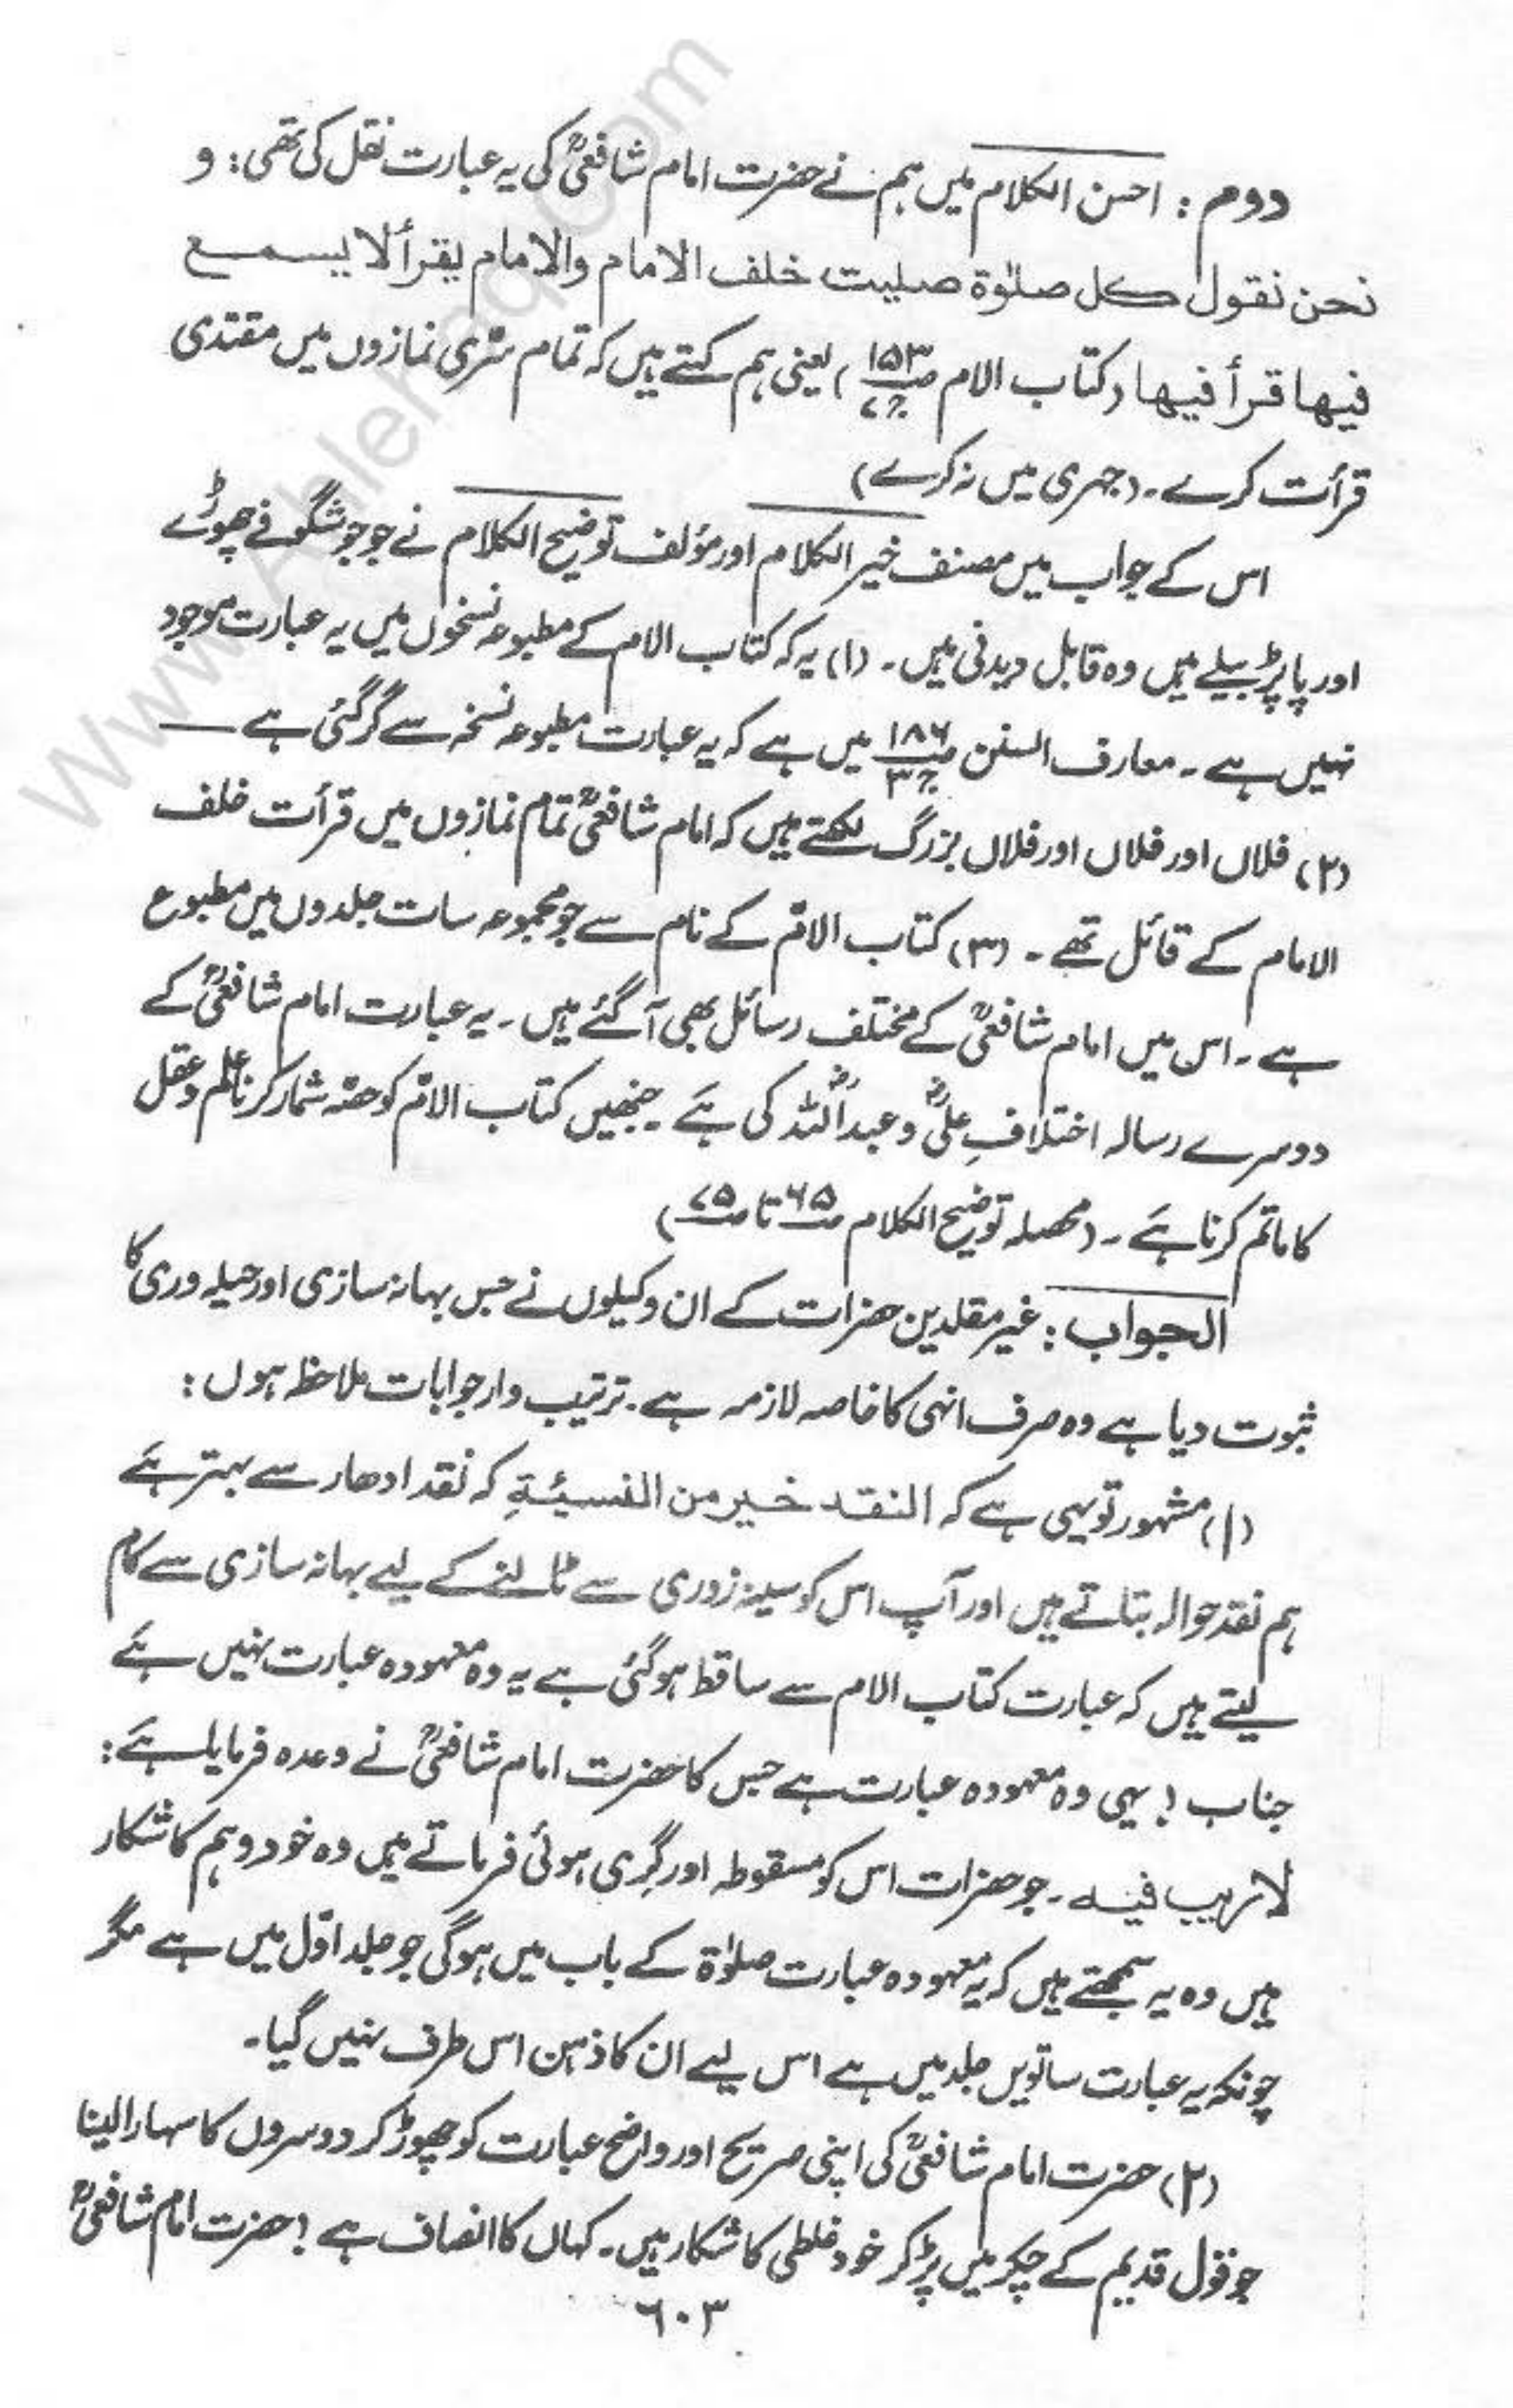 دوم : احسن الکلام میں ہم نے حضرت امام شافعیؒ کی یہ عبارت نقل کی تھی : و
نحن نقول کل صلوٰۃ صلیت خلف الامام والامام یقرأ لا یسمع
فیھا قرأ فیھا (کتاب الام ص۱۵۳ ج۷) یعنی ہم کہتے ہیں کہ تمام سرّی نمازوں میں مقتدی
قرأت کرے۔ (جہری میں نہ کرے)
اس کے جواب میں مصنف خیر الکلام اور مؤلف توضیح الکلام نے جو جو شگوفے چھوڑے
اور پاپڑ بیلے ہیں وہ قابل دیدنی ہیں۔ (۱) یہ کہ کتاب الام کے مطبوعہ نسخوں میں یہ عبارت موجود
نہیں ہے۔ معارف السنن ص۱۸۶ ج۳ میں ہے کہ یہ عبارت مطبوعہ نسخہ سے گر گئی ہے ——
(۲) فلاں اور فلاں اور فلاں بزرگ لکھتے ہیں کہ امام شافعیؒ تمام نمازوں میں قرأت خلف
الامام کے قائل تھے۔ (۳) کتاب الامّ کے نام سے جو مجموعہ سات جلدوں میں مطبوع
ہے۔ اس میں امام شافعیؒ کے مختلف رسائل بھی آ گئے ہیں۔ یہ عبارت امام شافعیؒ کے
دوسرے رسالہ اختلافِ علیؓ و عبداللہؓ کی ہے۔ جنھیں کتاب الامّ کو حصّہ شمار کرنا علم و عقل
کا ماتم کرنا ہے۔ (محصلہ توضیح الکلام ص۶۵ تا ص۷۵)
الجواب : غیر مقلدین حضرات کے ان وکیلوں نے جس بہانہ سازی اور حیلہ وری کا
ثبوت دیا ہے وہ صرف انہی کا خاصہ لازمہ ہے۔ ترتیب وار جوابات ملاحظہ ہوں :
(۱) مشہور تو یہی ہے کہ النقد خیر من النسیئۃِ کہ نقد ادھار سے بہتر ہے
ہم نقد حوالہ بتاتے ہیں اور آپ اس کو سینہ زوری سے ٹالنے کے لیے بہانہ سازی سے کام
لیتے ہیں کہ عبارت کتاب الام سے ساقط ہو گئی ہے یہ وہ معہودہ عبارت نہیں ہے
جناب ! یہی وہ معہودہ عبارت ہے جس کا حضرت امام شافعیؒ نے وعدہ فرمایا ہے :
لا ریب فیہ۔ جو حضرات اس کو مسقوطہ اور گری ہوئی فرماتے ہیں وہ خود وہم کا شکار
ہیں وہ یہ سمجھتے ہیں کہ یہ معہودہ عبارت صلوٰۃ کے باب میں ہو گی جو جلد اوّل میں ہے مگر
چونکہ یہ عبارت ساتویں جلد میں ہے اس لیے ان کا ذہن اس طرف نہیں گیا۔
(۲) حضرت امام شافعیؒ کی اپنی صریح اور واضح عبارت کو چھوڑ کر دوسروں کا سہارا لینا
جو قول قدیم کے چکر میں پڑ کر خود غلطی کا شکار ہیں۔ کہاں کا انصاف ہے ! حضرت امام شافعیؒ
۶۰۳
www.Ahlehaq.Com